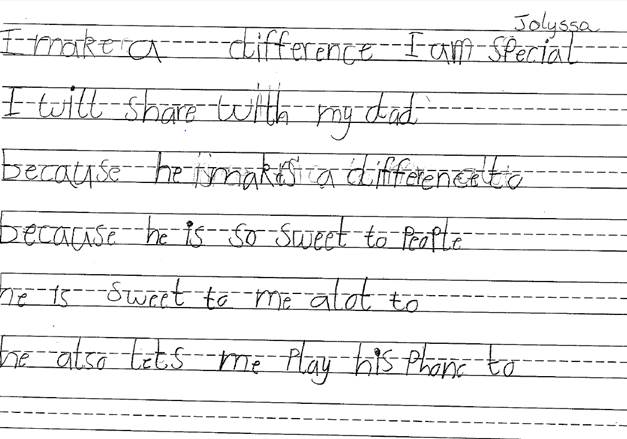 Jolyssa
I make a difference I am special
I will share with my dad
because he makes a difference to
because he is so sweet to people
he is sweet to me alot to
he also lets me play his phone to